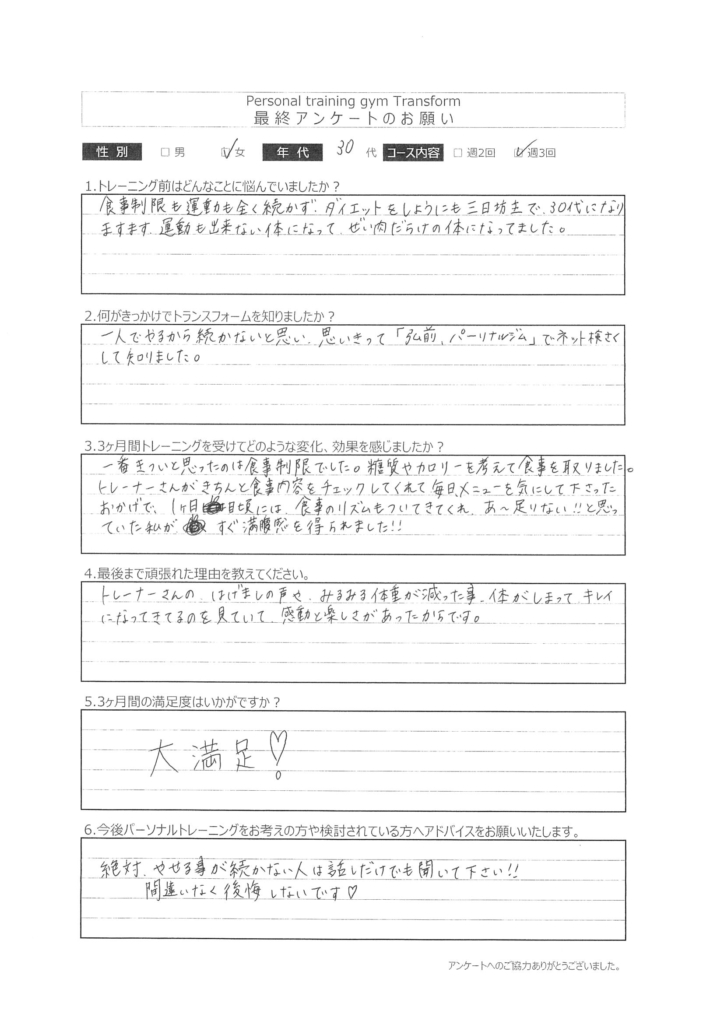 Personal training gym Transform
最終アンケートのお願い
性別 □ 男 ☑ 女 年代 30 代 コース内容 □ 週2回 ☑ 週3回
1.トレーニング前はどんなことに悩んでいましたか？
食事制限も運動も全く続かず、ダイエットをしようにも三日坊主で、30代になり
ますます、運動も出来ない体になって、ぜい肉だらけの体になってました。
2.何がきっかけでトランスフォームを知りましたか？
一人でやるから続かないと思い、思いきって「弘前、パーソナルジム」でネット検さく
して知りました。
3.3ヶ月間トレーニングを受けてどのような変化、効果を感じましたか？
一番キツいと思ったのは食事制限でした。糖質やカロリーを考えて食事を取りました。
トレーナーさんがきちんと食事内容をチェックしてくれて毎日、メニューを気にして下さった
おかげで、1ヶ月目頃には、食事のリズムもついてきてくれ、あ〜足りない!!と思っ
ていた私が すぐ満腹感を得られました!!
4.最後まで頑張れた理由を教えてください。
トレーナーさんの、はげましの声や、みるみる体重が減った事、体がしまって、キレイ
になってきてるのを見ていて、感動と楽しさがあったからです。
5.3ヶ月間の満足度はいかがですか？
大満足♡
6.今後パーソナルトレーニングをお考えの方や検討されている方へアドバイスをお願いいたします。
絶対、やせる事が続かない人は話しだけでも聞いて下さい!!
間違いなく後悔しないです♡
アンケートへのご協力ありがとうございました。